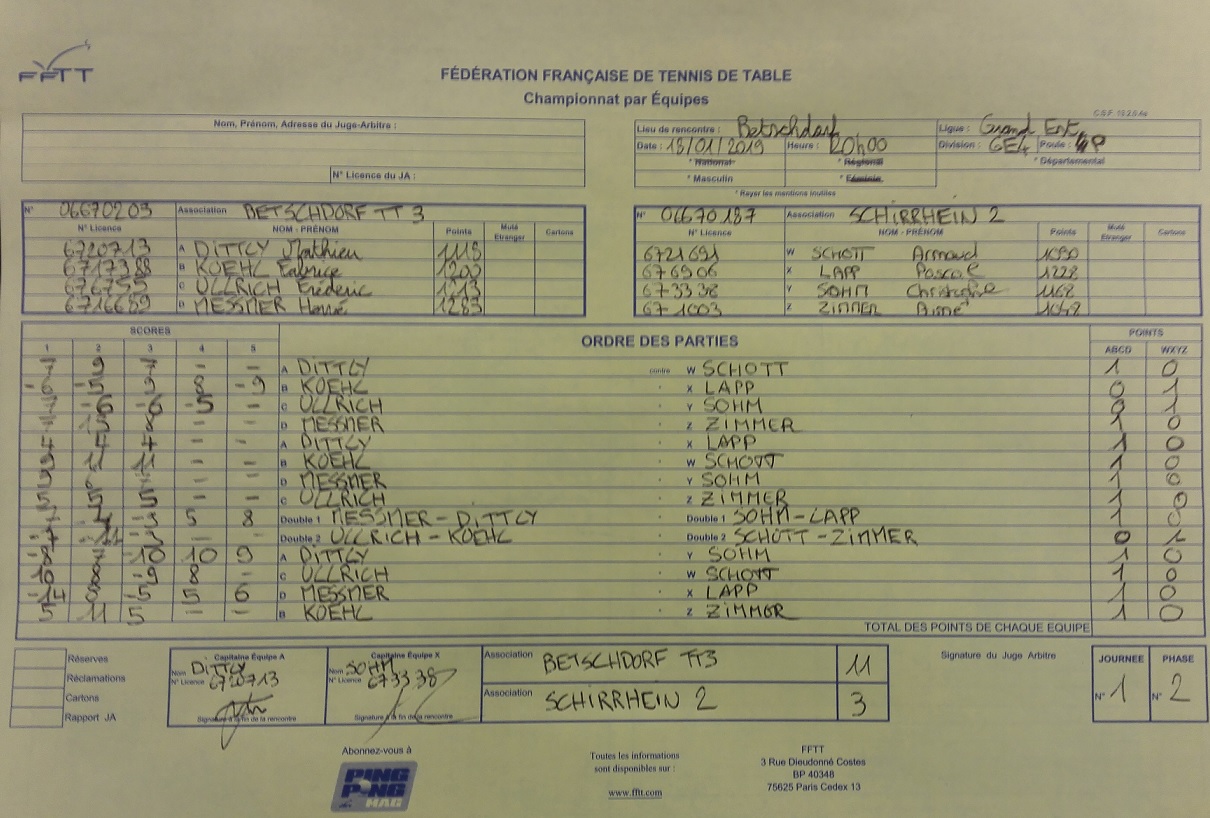 FFTT
FÉDÉRATION FRANÇAISE DE TENNIS DE TABLE
Championnat par Équipes
Nom, Prénom, Adresse du Juge-Arbitre :
N° Licence du JA :
Lieu de rencontre : Betschdorf Ligue : Grand Est
Date : 18/01/2019 Heure : 20h00 Division : GE4 Poule : P
* National * Régional * Départemental
* Masculin * Féminin
* Rayer les mentions inutiles
N° 06670203 Association BETSCHDORF TT 3
N° Licence NOM - PRÉNOM Points Muté Etranger Cartons
6720713 A DITTLY Mathieu 1115
6717388 B KOEHL Fabrice 1200
676755 C ULLRICH Fréderic 1213
6716689 D MESSMER Hervé 1283
N° 06670187 Association SCHIRRHEIN 2
N° Licence NOM - PRÉNOM Points Muté Etranger Cartons
6721691 W SCHOTT Arnaud 1090
676906 X LAPP Pascal 1228
673338 Y SOHM Christophe 1168
671003 Z ZIMMER Aimé
SCORES ORDRE DES PARTIES POINTS
1 2 3 4 5 ABCD WXYZ
7 9 7 - - A DITTLY contre W SCHOTT 1 0
-6 -5 9 8 -9 B KOEHL X LAPP 0 1
7 -6 -6 -5 - C ULLRICH Y SOHM 0 1
8 - - D MESSMER Z ZIMMER 1 0
4 4 4 - - A DITTLY X LAPP 1 0
11 11 - - B KOEHL W SCHOTT 1 0
D MESSMER Y SOHM 1 0
5 5 5 - - C ULLRICH Z ZIMMER 1 0
5 8 Double 1 MESSMER - DITTLY Double 1 SOHM - LAPP 1 0
Double 2 ULLRICH - KOEHL Double 2 SCHOTT - ZIMMER 0 1
-10 10 9 A DITTLY Y SOHM 1 0
10 8 -9 8 - C ULLRICH W SCHOTT 1 0
-14 8 -5 5 6 D MESSMER X LAPP 1 0
5 11 5 - - B KOEHL Z ZIMMER 1 0
TOTAL DES POINTS DE CHAQUE EQUIPE
Réserves
Réclamations
Cartons
Rapport JA
Capitaine Équipe A
Nom DITTLY
N° Licence 6720713
Signature à la fin de la rencontre
Capitaine Équipe X
Nom SOHM
N° Licence 673338
Signature à la fin de la rencontre
Association BETSCHDORF TT3 11
Association SCHIRRHEIN 2 3
Signature du Juge Arbitre
JOURNEE PHASE
N° 1 N° 2
Abonnez-vous à
PING PONG MAG
Toutes les informations
sont disponibles sur :
www.fftt.com
FFTT
3 Rue Dieudonné Costes
BP 40348
75625 Paris Cedex 13